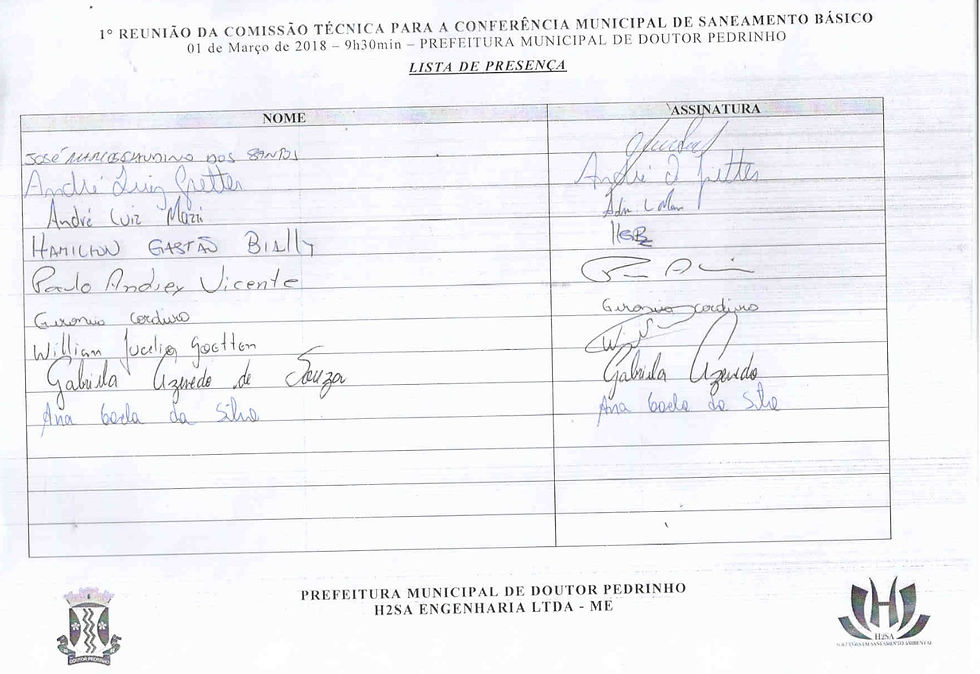 1° REUNIÃO DA COMISSÃO TÉCNICA PARA A CONFERÊNCIA MUNICIPAL DE SANEAMENTO BÁSICO
01 de Março de 2018 – 9h30min – PREFEITURA MUNICIPAL DE DOUTOR PEDRINHO
LISTA DE PRESENÇA
NOME ASSINATURA
JOSÉ DOS SANTOS
André Luiz Gretter André Gretter
André Luiz
HAMILTON GASTÃO BIALLY HGB
Paulo Andrey Vicente
Geronio Cordeiro Geronio Cordeiro
Willian Jucelio Goetten
Gabriela Azevedo de Souza Gabriela Azevedo
Ana da Silva Ana da Silva
PREFEITURA MUNICIPAL DE DOUTOR PEDRINHO
H2SA ENGENHARIA LTDA - ME
DOUTOR PEDRINHO
H
H2SA